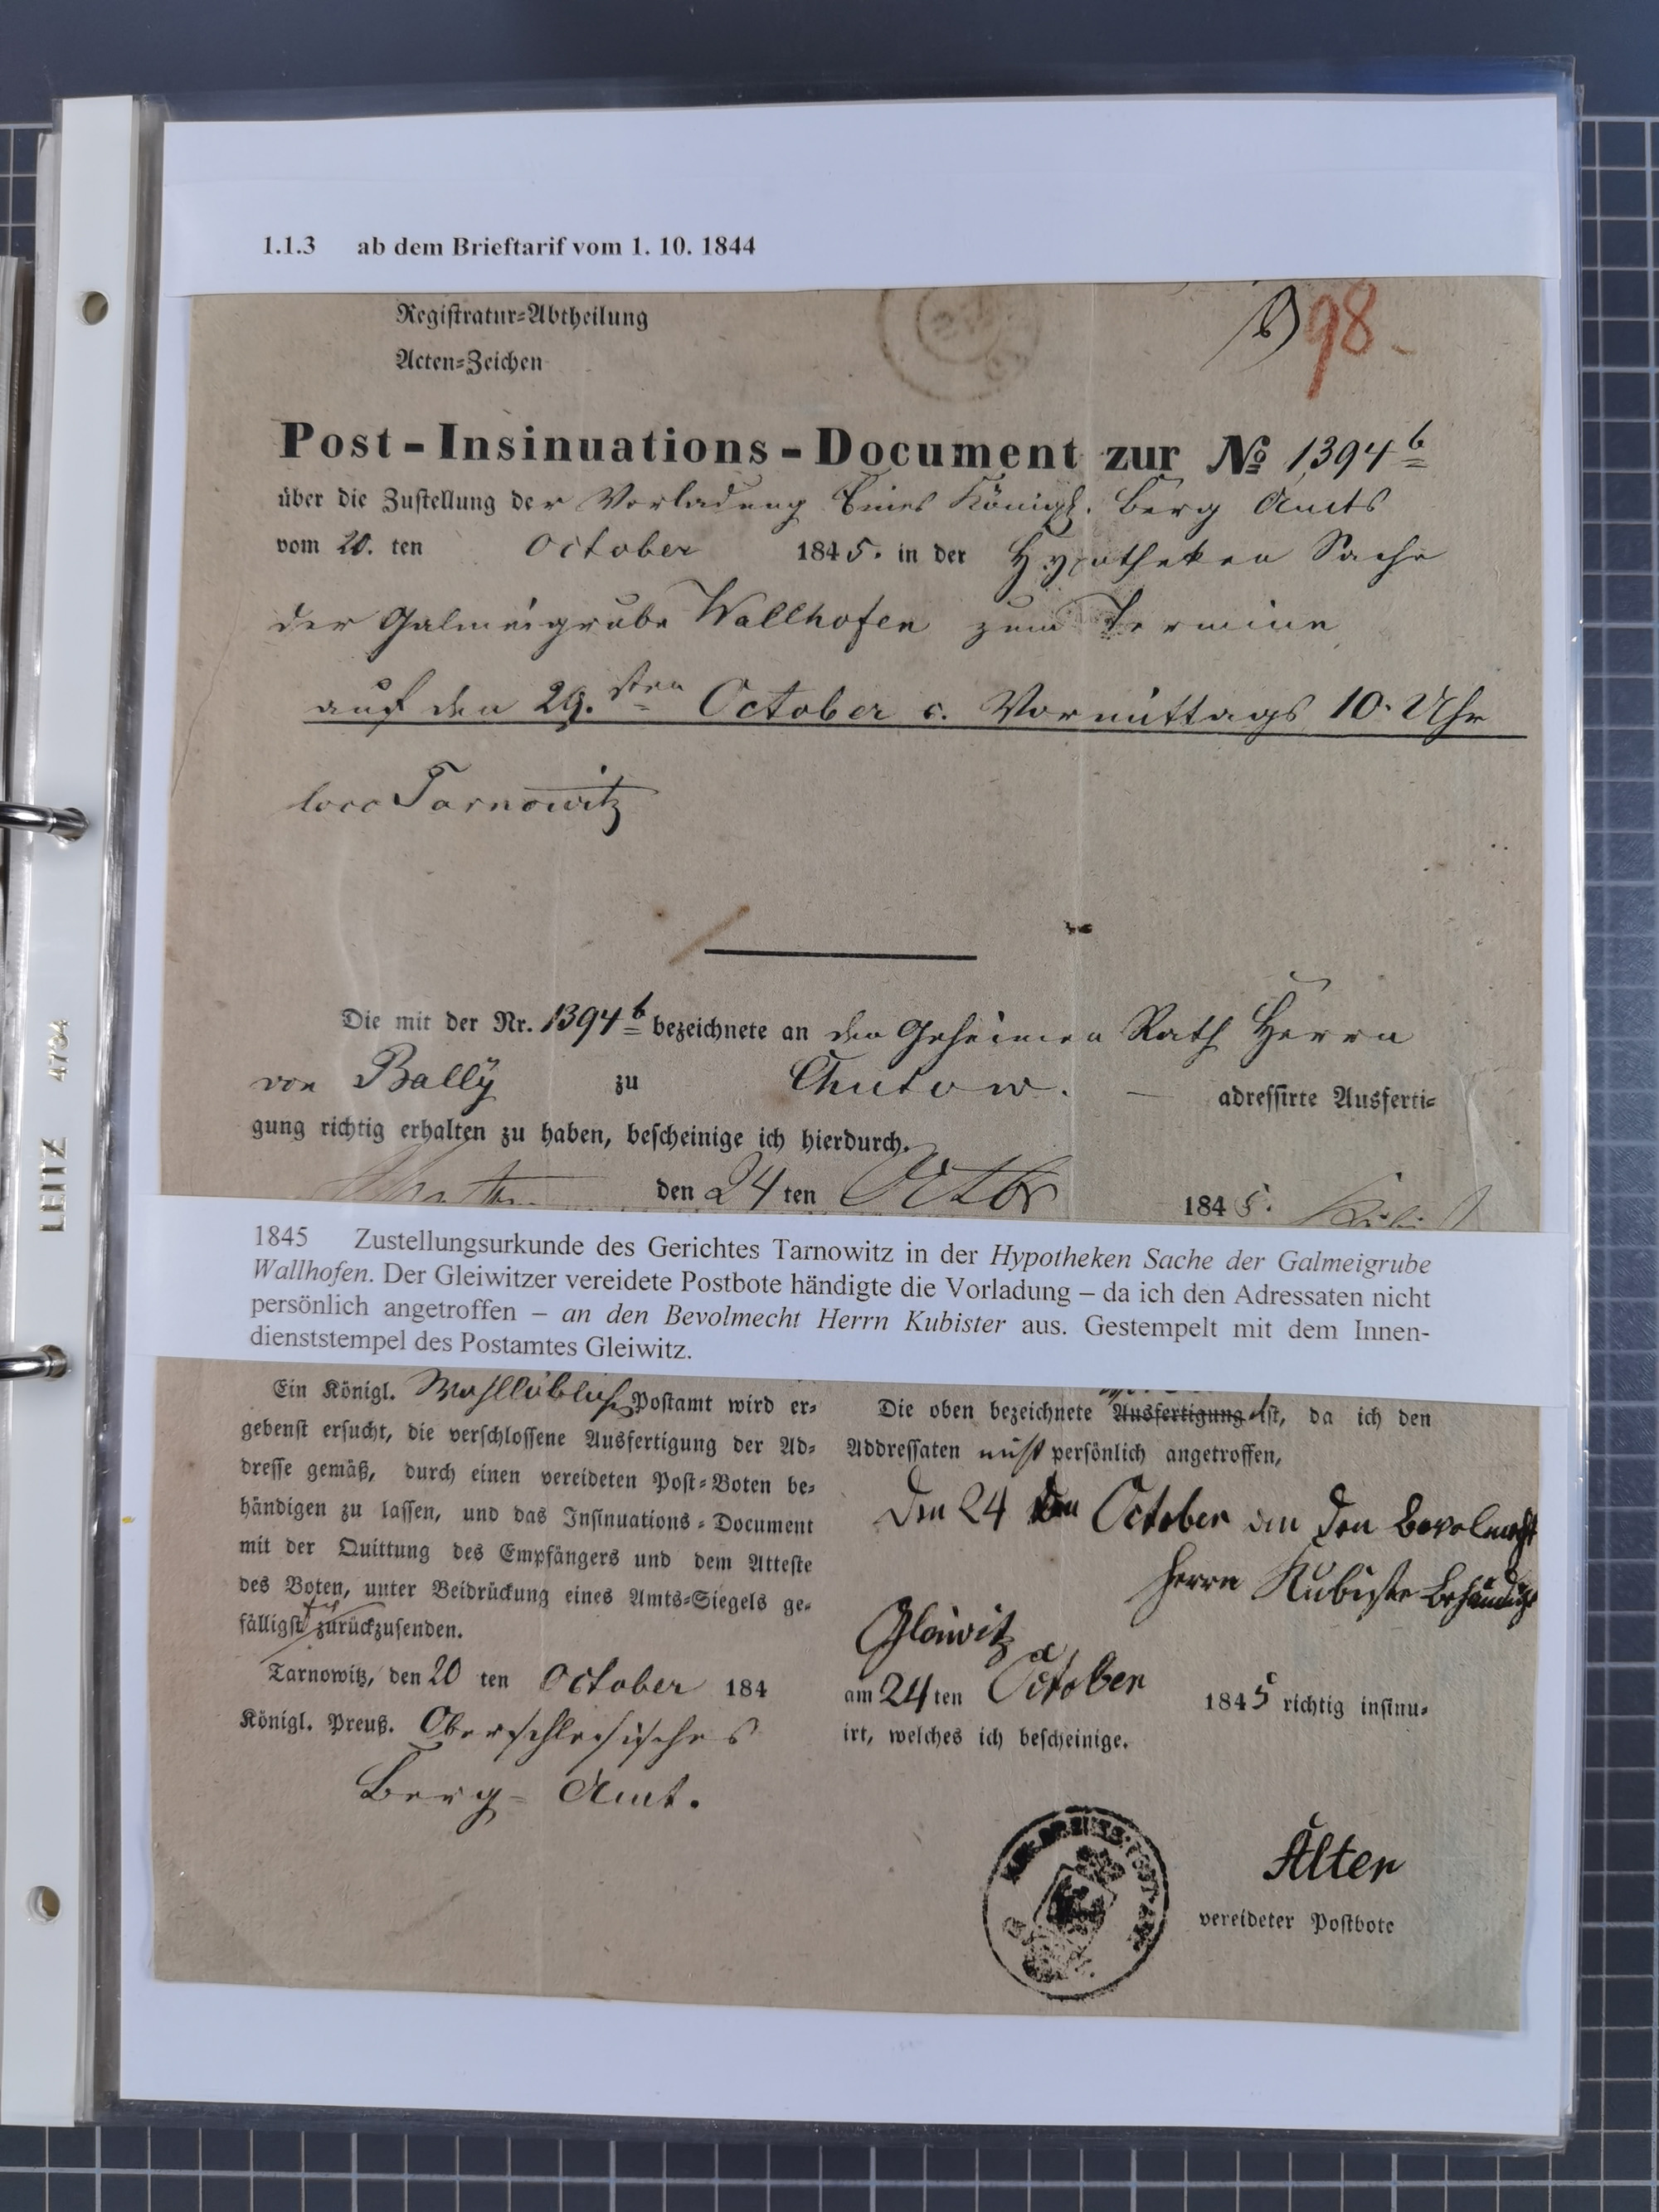 1.1.3 ab dem Brieftarif vom 1. 10. 1844
98.
Registratur-Abtheilung
Acten-Zeichen
Post-Insinuations-Document zur № 1394 b
über die Zustellung der Vorladung Eines Königl. Berg Amts
vom 20. ten October 1845. in der Hypotheken Sache
der Galmeigrube Wallhofen zum Termine
auf den 29. sten October c. Vormittags 10 Uhr
loco Tarnowitz
Die mit der Nr. 1394 b bezeichnete an den Geheimen Rath Herrn
von Bally zu Chutow. adressirte Ausferti-
gung richtig erhalten zu haben, bescheinige ich hierdurch.
den 24 ten Octbr 1845.
1845 Zustellungsurkunde des Gerichtes Tarnowitz in der Hypotheken Sache der Galmeigrube
Wallhofen. Der Gleiwitzer vereidete Postbote händigte die Vorladung – da ich den Adressaten nicht
persönlich angetroffen – an den Bevolmecht Herrn Kubister aus. Gestempelt mit dem Innen-
dienststempel des Postamtes Gleiwitz.
Ein Königl. Wohllöbliches Postamt wird er-
gebenst ersucht, die verschlossene Ausfertigung der Ad-
dresse gemäß, durch einen vereideten Post-Boten be-
händigen zu lassen, und das Insinuations-Document
mit der Quittung des Empfängers und dem Atteste
des Boten, unter Beidrückung eines Amts-Siegels ge-
fälligst zurückzusenden.
Tarnowitz, den 20 ten October 184
Königl. Preuß. Oberschlesisches
Berg-Amt.
Die oben bezeichnete Ausfertigung ist, da ich den
Addressaten nicht persönlich angetroffen,
Den 24 ten October an den Bevolmecht
Herrn Kubister behändigt
Gleiwitz
am 24 ten October 1845 richtig insinu-
irt, welches ich bescheinige.
Alter
vereideter Postbote
LEITZ 4734